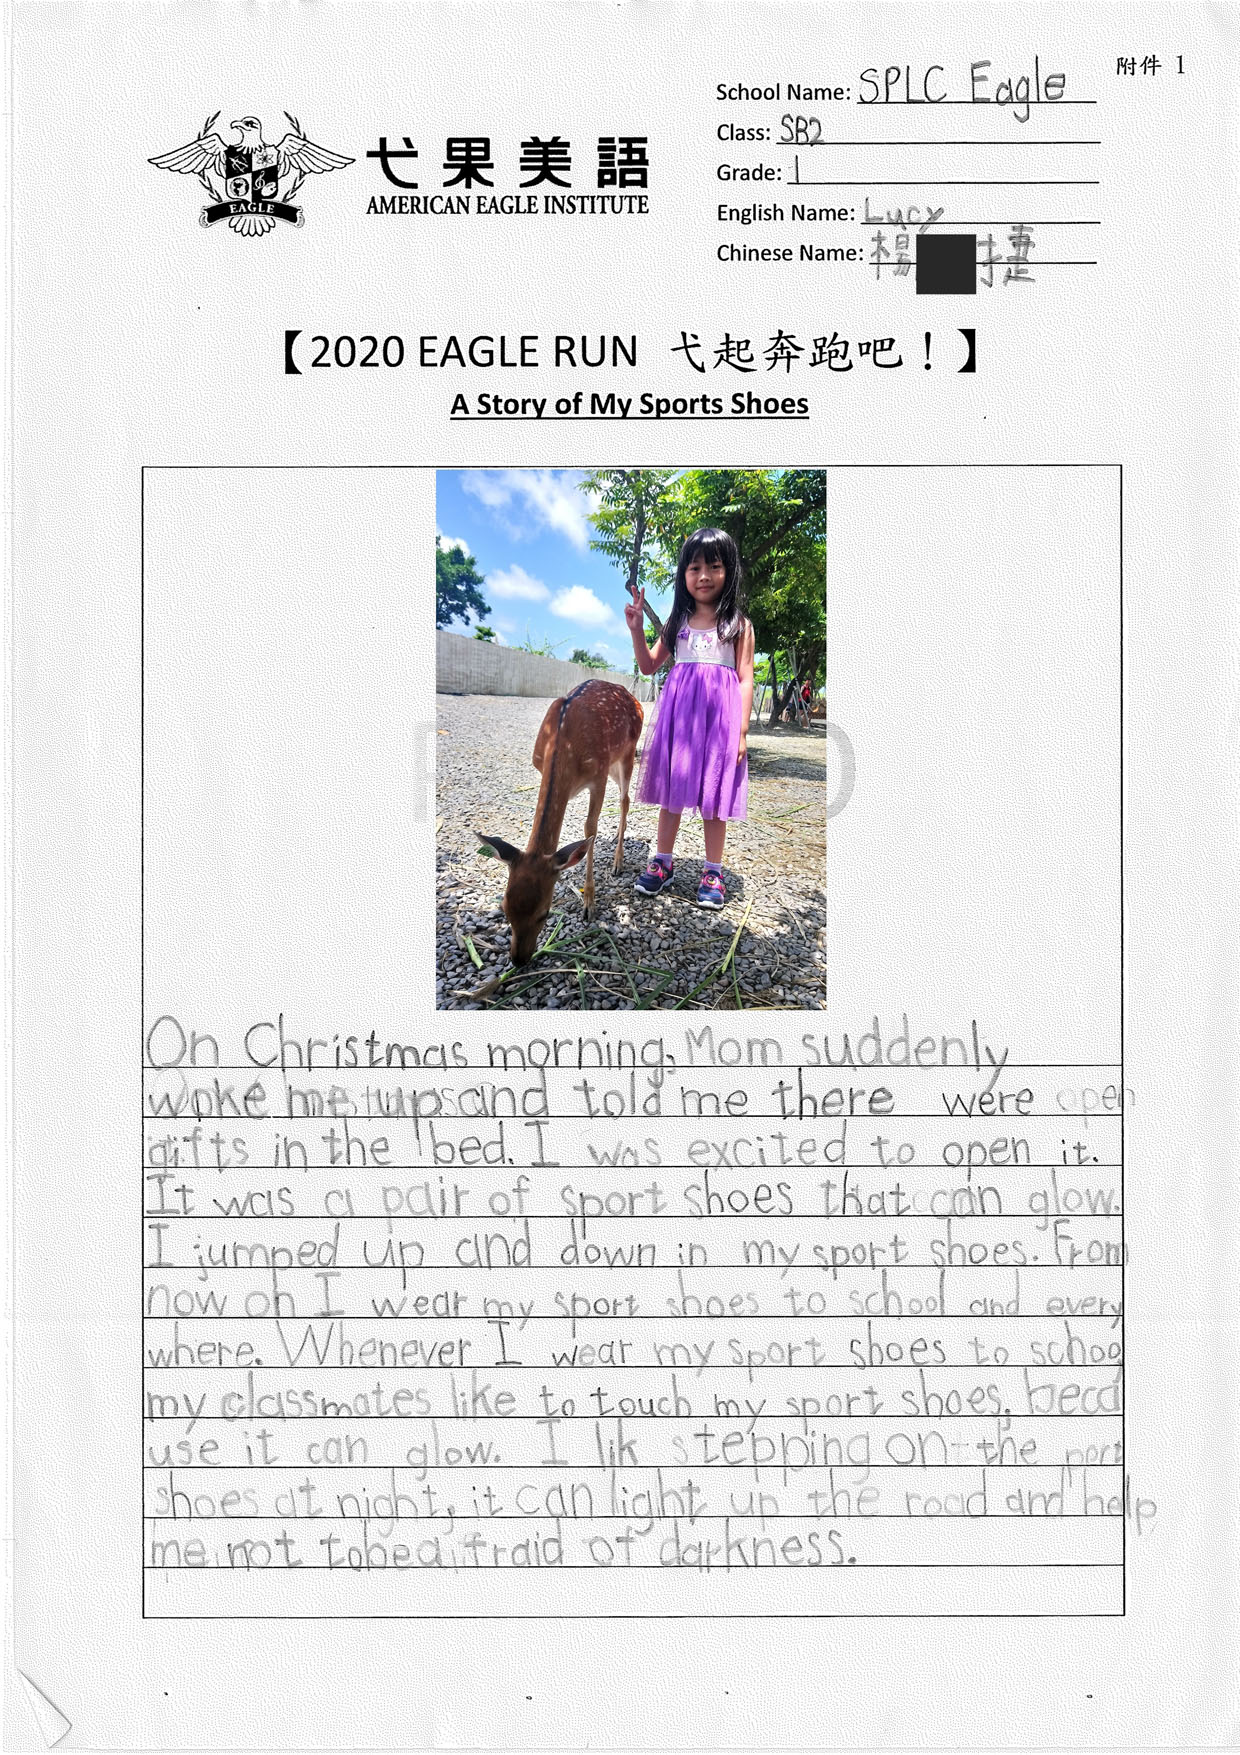 附件 1
School Name: SPLC Eagle
Class: SB2
Grade: 1
English Name: Lucy
Chinese Name: 楊 捷
EAGLE
弋果美語
AMERICAN EAGLE INSTITUTE
【2020 EAGLE RUN 弋起奔跑吧！】
A Story of My Sports Shoes
On Christmas morning, Mom suddenly
woke me up and told me there were open
gifts in the bed. I was excited to open it.
It was a pair of sport shoes that can glow.
I jumped up and down in my sport shoes. From
now on I wear my sport shoes to school and every
where. Whenever I wear my sport shoes to schoo
my classmates like to touch my sport shoes. beca
use it can glow. I lik stepping on the
shoes at night, it can light up the road and help
me not to be afraid of darkness.